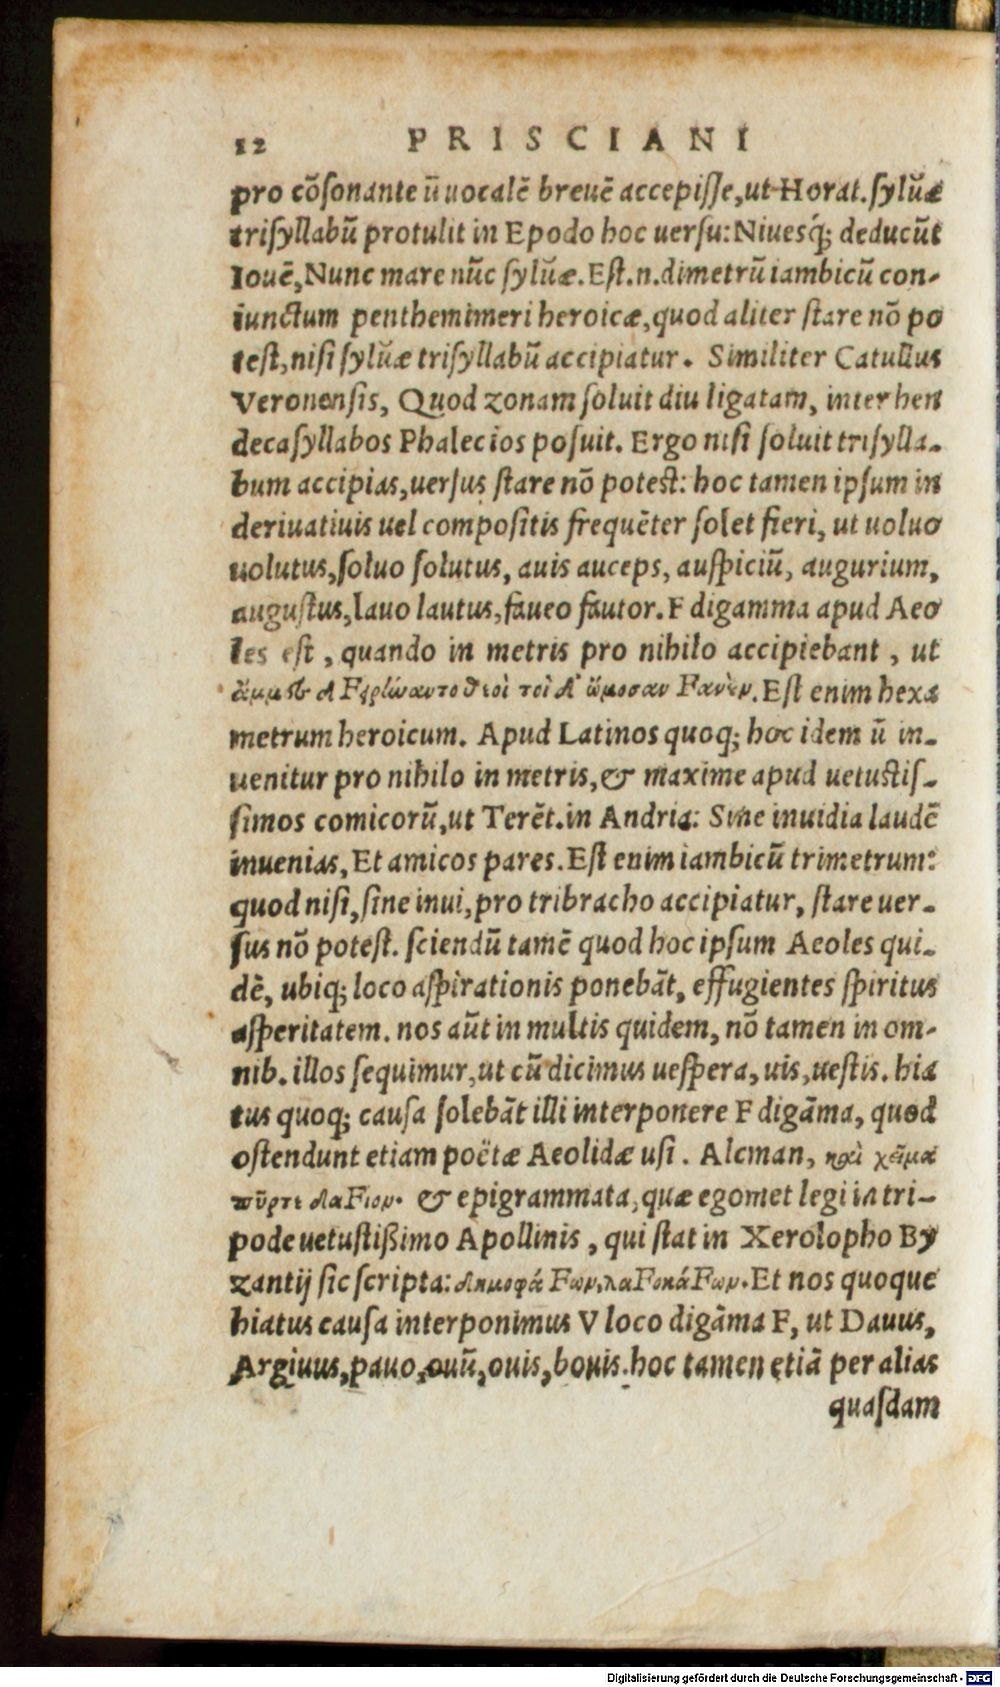 12 PRISCIANI
pro cõſonante ũ uocalē breuē accepiſſe, ut Horat. ſylŭæ
triſyllabũ protulit in Epodo hoc uerſu: Niuesq́; deducũt
Iouē, Nunc mare nũc ſylŭæ. Eſt.n. dimetrũ iambicũ con-
iunctum penthemimeri heroicæ, quod aliter ſtare nõ po
teſt, niſi ſylŭæ triſyllabũ accipiatur. Similiter Catullus
Veronenſis, Quod zonam ſoluit diu ligatam, inter hen
decaſyllabos Phalecios poſuit. Ergo niſi ſoluit triſylla-
bum accipias, uerſus ſtare nõ poteſt: hoc tamen ipſum in
deriuatiuis uel compoſitis frequēter ſolet fieri, ut uoluo
uolutus, ſoluo ſolutus, auis auceps, auſpiciũ, augurium,
auguſtus, lauo lautus, faueo fautor. F digamma apud Aeo
les eſt, quando in metris pro nihilo accipiebant, ut
θεοὶ τοὶ ὤμοσαν . Eſt enim hexa
metrum heroicum. Apud Latinos quoq; hoc idem ũ in-
uenitur pro nihilo in metris, & maxime apud uetuſtiſ-
ſimos comicorũ, ut Terēt. in Andria: Sine inuidia laudē
inuenias, Et amicos pares. Eſt enim iambicũ trimetrum:
quod niſi, ſine inui, pro tribracho accipiatur, ſtare uer-
ſus nõ poteſt. ſciendũ tamē quod hoc ipſum Aeoles qui-
dē, ubiq; loco aſpirationis ponebãt, effugientes ſpiritus
aſperitatem. nos aũt in multis quidem, nõ tamen in om-
nib. illos ſequimur, ut cũ dicimus ueſpera, uis, ueſtis. hia
tus quoq; cauſa ſolebãt illi interponere F digãma, quod
oſtendunt etiam poëtæ Aeolidæ uſi. Alcman, καὶ χεῖμα
πῦρτε δαFιον. & epigrammata, quæ egomet legi in tri-
pode uetuſtißimo Apollinis, qui ſtat in Xerolopho By
zantij ſic ſcripta: δημοφάFων, λαFοκάFων. Et nos quoque
hiatus cauſa interponimus V loco digãma F, ut Dauus,
Argiuus, pauo, ouũ, ouis, bouis. hoc tamen etiã per alias
quaſdam
Digitalisierung gefördert durch die Deutsche Forschungsgemeinschaft - DFG